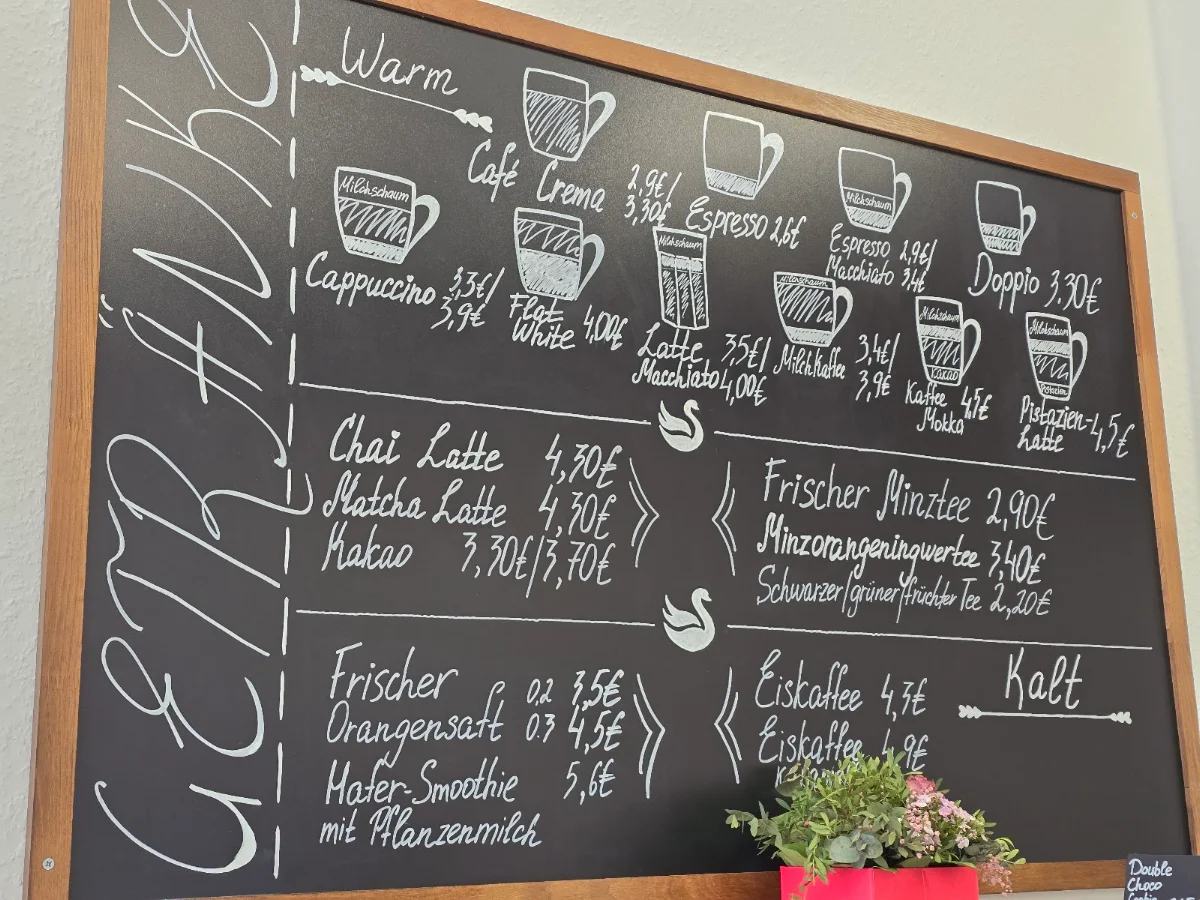 GETRÄNKE
Warm
Café Crema 2,9€/
3,30€
Espresso 2,6€
Milchschaum
Espresso 2,9€/
Macchiato 3,4€
Doppio 3.30€
Milchschaum
Cappuccino 3,3€/
3,9€
Flat
White 4,00€
Milchschaum
Latte 3,5€/
Macchiato 4,00€
Milchschaum
MilchKaffee 3,4€/
3,9€
Milchschaum
Kakao
Kaffee 4,5€
Mokka
Milchschaum
Pistazien
Pistazien-4,5€
Latte
Chai Latte 4,30€
Matcha Latte 4,30€
Kakao 3,30€/3,70€
Frischer Minztee 2,90€
Minzorangeningwertee 3,40€
Schwarzer/grüner/früchter Tee 2,20€
Frischer 0,2 3,5€
Orangensaft 0.3 4,5€
Hafer-Smoothie 5,6€
mit Pflanzenmilch
Kalt
Eiskaffee 4,3€
Eiskaffee 4,9€
Double
Choco
Cookie